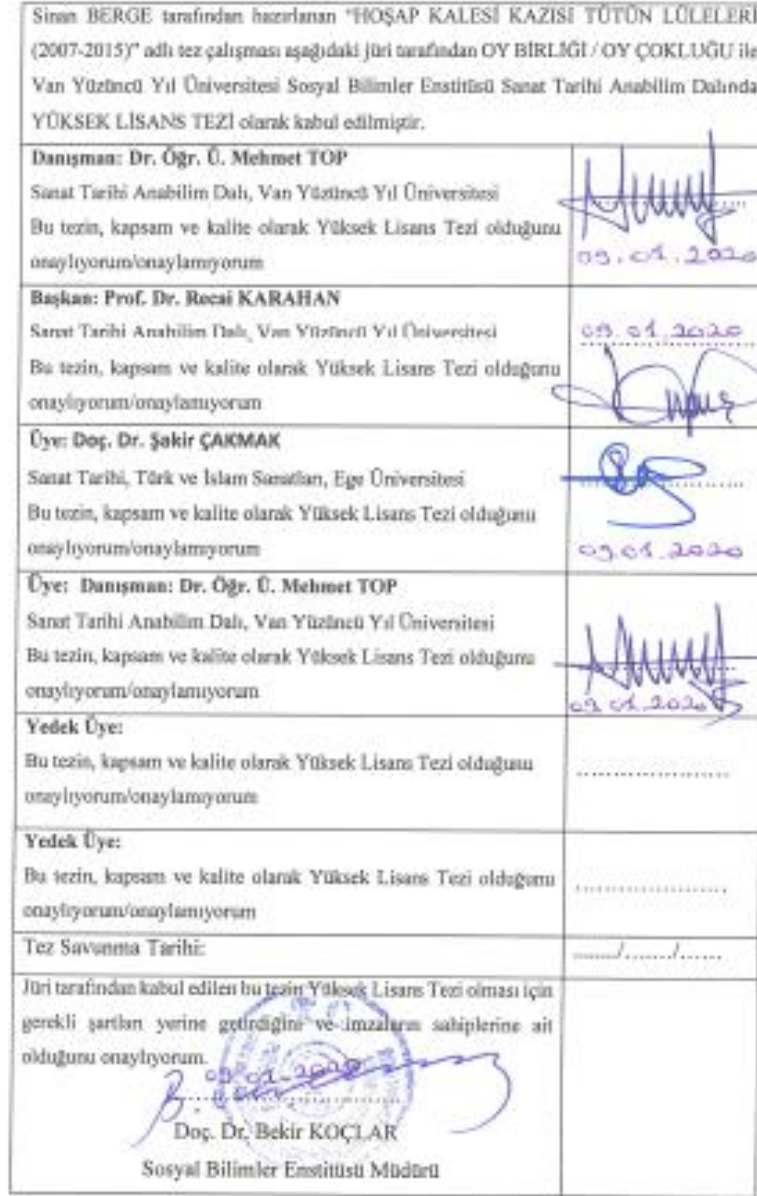 Sinan BERGE tarafından hazırlanan "HOŞAP KALESİ KAZISI TÜTÜN LÜLELERİ
(2007-2015)" adlı tez çalışması aşağıdaki jüri tarafından OY BİRLİĞİ / OY ÇOKLUĞU ile
Van Yüzüncü Yıl Üniversitesi Sosyal Bilimler Enstitüsü Sanat Tarihi Anabilim Dalında
YÜKSEK LİSANS TEZİ olarak kabul edilmiştir.
Danışman: Dr. Öğr. Ü. Mehmet TOP
Sanat Tarihi Anabilim Dalı, Van Yüzüncü Yıl Üniversitesi
Bu tezin, kapsam ve kalite olarak Yüksek Lisans Tezi olduğunu
onaylıyorum/onaylamıyorum
09.01.2020
Başkan: Prof. Dr. Recai KARAHAN
Sanat Tarihi Anabilim Dalı, Van Yüzüncü Yıl Üniversitesi
09.01.2020
Bu tezin, kapsam ve kalite olarak Yüksek Lisans Tezi olduğunu
onaylıyorum/onaylamıyorum
Üye: Doç. Dr. Şakir ÇAKMAK
Sanat Tarihi, Türk ve İslam Sanatları, Ege Üniversitesi
Bu tezin, kapsam ve kalite olarak Yüksek Lisans Tezi olduğunu
onaylıyorum/onaylamıyorum
09.01.2020
Üye: Danışman: Dr. Öğr. Ü. Mehmet TOP
Sanat Tarihi Anabilim Dalı, Van Yüzüncü Yıl Üniversitesi
Bu tezin, kapsam ve kalite olarak Yüksek Lisans Tezi olduğunu
onaylıyorum/onaylamıyorum
09.01.2020
Yedek Üye:
Bu tezin, kapsam ve kalite olarak Yüksek Lisans Tezi olduğunu
onaylıyorum/onaylamıyorum
....................
Yedek Üye:
Bu tezin, kapsam ve kalite olarak Yüksek Lisans Tezi olduğunu
onaylıyorum/onaylamıyorum
....................
Tez Savunma Tarihi:
....../....../......
Jüri tarafından kabul edilen bu tezin Yüksek Lisans Tezi olması için
gerekli şartları yerine getirdiğini ve imzaların sahiplerine ait
olduğunu onaylıyorum.
09.01.2020
Doç. Dr. Bekir KOÇLAR
Sosyal Bilimler Enstitüsü Müdürü